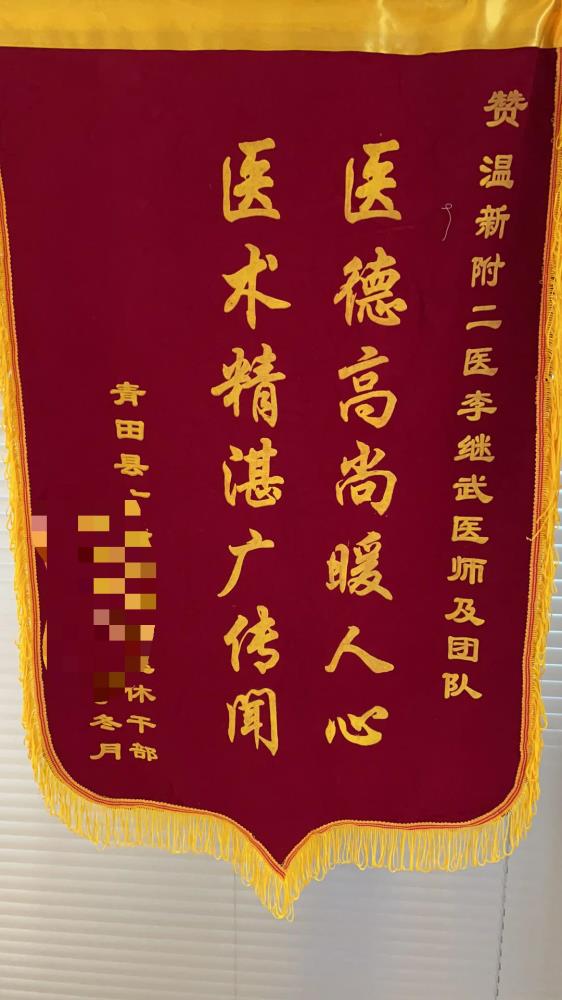 赞温新附二医李继武医师及团队
医德高尚暖人心
医术精湛广传闻
青田县
休干部
冬月